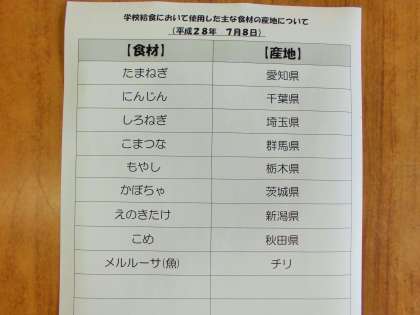 学校給食において使用した主な食材の産地について
(平成28年 7月8日)
【食材】 【産地】
たまねぎ 愛知県
にんじん 千葉県
しろねぎ 埼玉県
こまつな 群馬県
もやし 栃木県
かぼちゃ 茨城県
えのきたけ 新潟県
こめ 秋田県
メルルーサ(魚) チリ